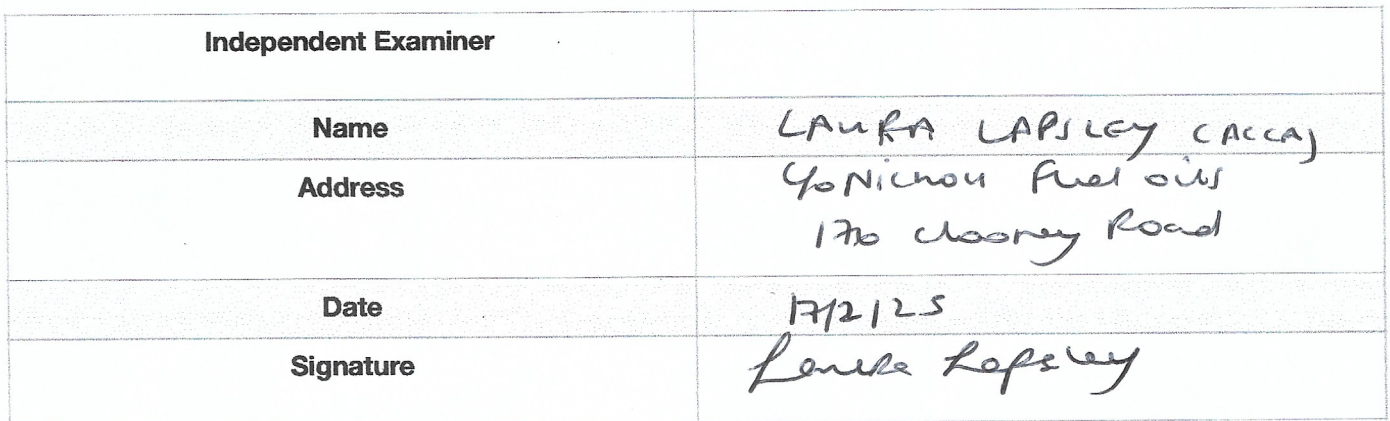 Independent Examiner
Name LAURA LAPSLEY (ACCA)
Address c/o Nicholl Fuel oils
170 Clooney Road
Date 17/2/25
Signature Laura Lapsley